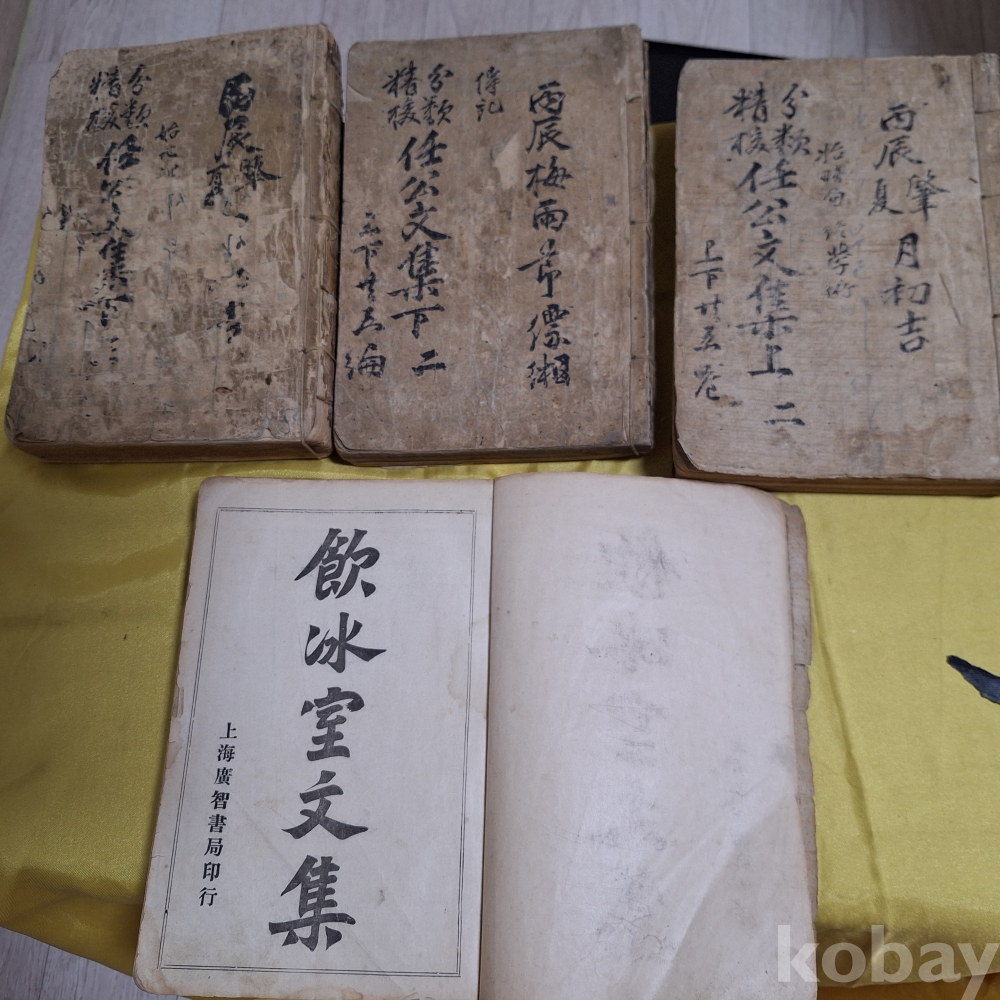 丙辰
分類
精校
任公文集

丙辰梅雨節縹緗
傳記
分類
精校
任公文集下二
三下廿五編

丙辰肇
夏月初吉
學術
分類
精校
任公文集上二
上下廿五

飲冰室文集
上海廣智書局印行
kobay